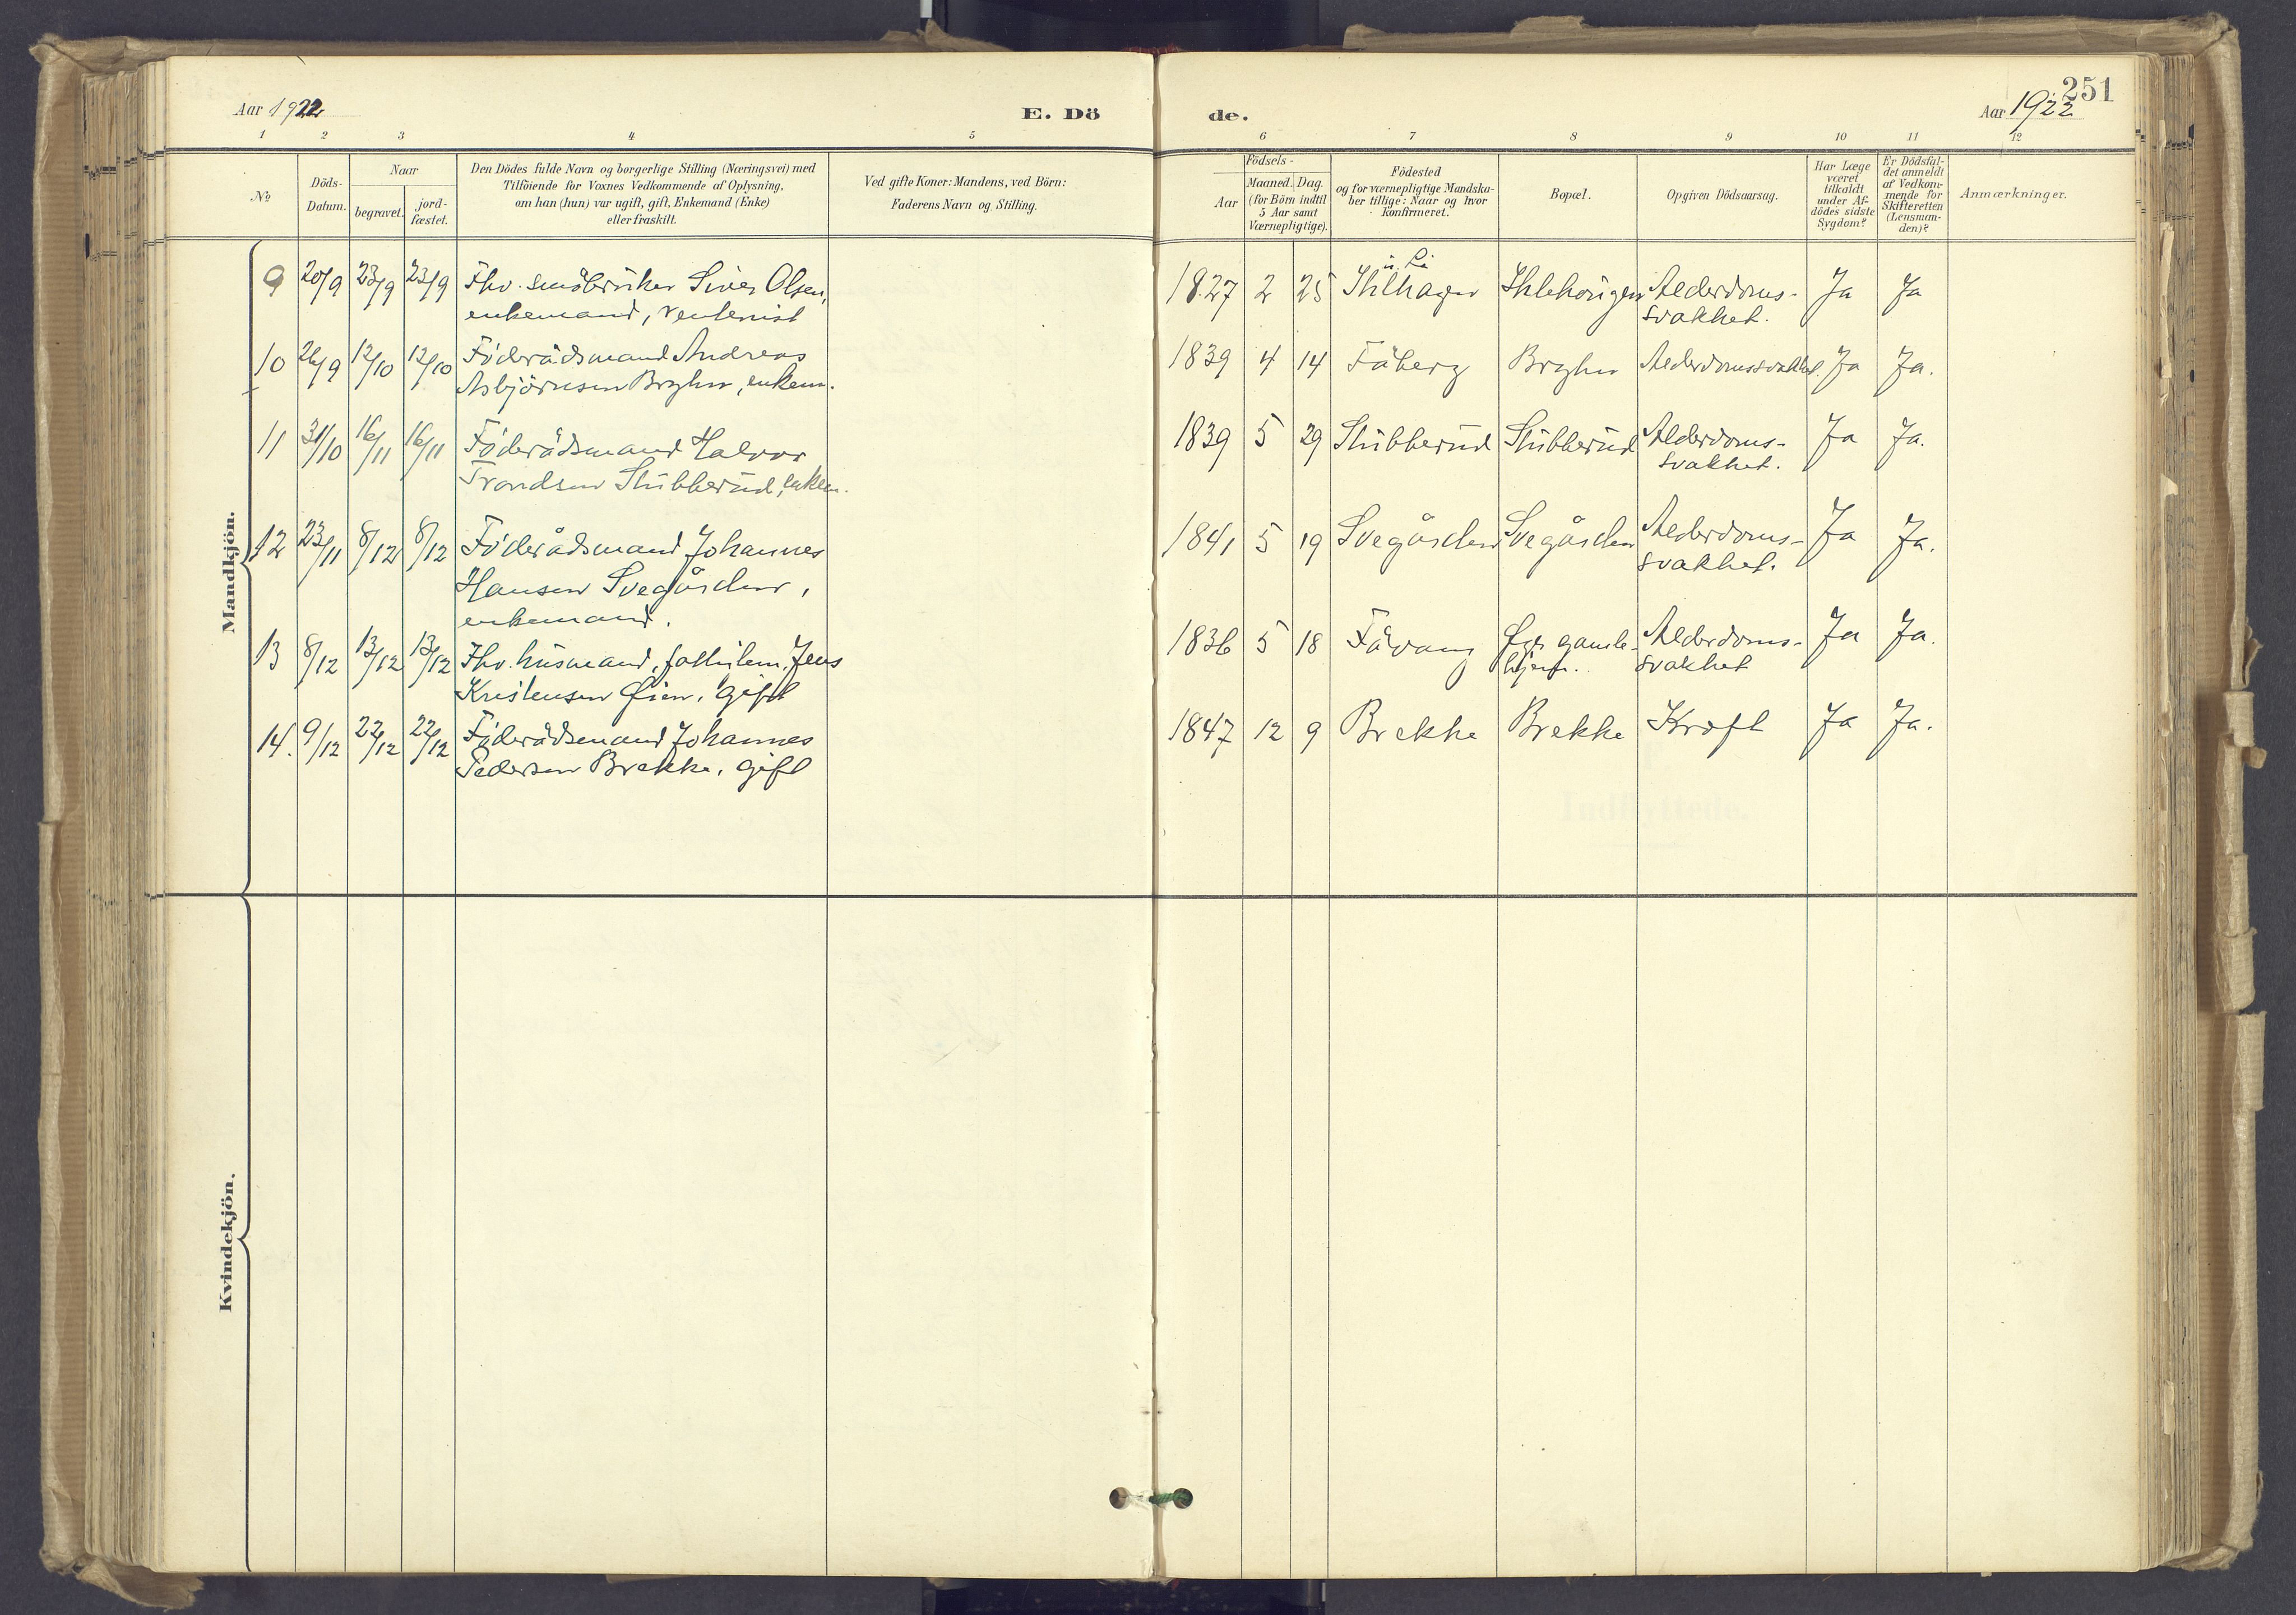 251
Aar 1922
E. Dö
de.
Aar 1922
1 2 3 4 5 6 7 8 9 10 11 12
No
Döds-Datum.
Naar
begravet.
jord-fæstet.
Den Dödes fulde Navn og borgerlige Stilling (Næringsvei) med
Tilföiende for Voxnes Vedkommende af Oplysning,
om han (hun) var ugift, gift, Enkemand (Enke)
eller fraskilt.
Ved gifte Koner: Mandens, ved Börn:
Faderens Navn og Stilling.
Födsels-
Aar
Maaned. Dag.
(for Börn indtil
5 Aar samt
Værnepligtige).
Födested
og for værnepligtige Mandska-
ber tillige: Naar og hvor
Konfirmeret.
Bopæl.
Opgiven Dödsaarsag.
Har Læge
været
tilkaldt
under Af-
dödes sidste
Sygdom?
Er Dödsfal-
det anmeldt
af Vedkom-
mende for
Skifteretten
(Lensman-
den)?
Anmærkninger.
Mandkjön.
9 20/9 23/9 23/9 Fhv. småbruker Siver Olsen, 1827 2 25 Alderdoms- Ja Ja
enkemand, svakhet.
10 26/9 12/10 12/10 Föderådsmand Andreas 1839 4 14 Fåberg Bryhn Alderdomssvakhet Ja Ja.
Asbjörnsen Bryhn, enkem.
11 31/10 16/11 16/11 Föderådsmand Halvor 1839 5 29 Stubberud Stubberud Alderdoms- Ja Ja.
Trondsen Stubberud, enkem. svakhet.
12 23/11 8/12 8/12 Föderådsmand Johannes 1841 5 19 Svegården Svegården Alderdoms- Ja Ja.
Hansen Svegården, svakhet.
enkemand.
13 8/12 13/12 13/12 Fhv. husmand, fattiglem, Jens 1836 5 18 Fåvang gamle- Alderdoms- Ja Ja.
Kristensen Øien, gift hjem. svakhet
14. 9/12 22/12 22/12 Föderådsmand Johannes 1847 12 9 Brekke Brekke Kræft Ja Ja.
Pedersen Brekke, gift
Kvindekjön.